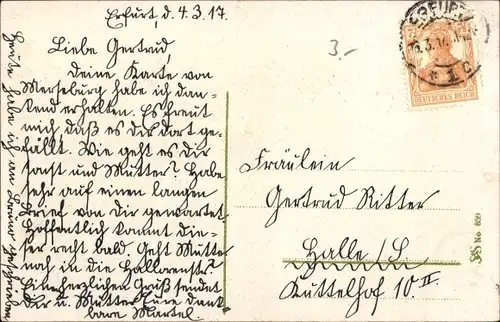 Erfurt, d. 4.3.17.
Liebe Gertrud,
Deine Karte von
Merseburg habe ich dan-
kend erhalten. Es freut
mich daß es dir dort ge-
fällt. Wie geht es Dir
sonst und Mutter? Habe
sehr auf einen langen
Brief von Dir gewartet
Hoffentlich kommt die-
ser recht bald. Geht Mutter
noch in die Hallorenstr?
Ein herzlichen Gruß sendet
Dir u. Mutter Eure dank
bare Martel.
Heute habe ich an
3.-
ERFURT
3.17
DEUTSCHES REICH
Fräulein
Gertrud Ritter
Halle/S.
Kuttelhof 10 II.
No. 859